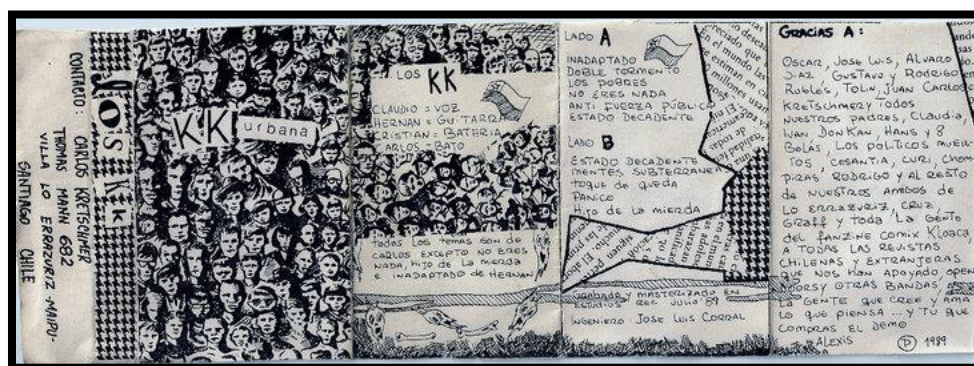 CONTACTO : CARLOS KRETSCHMER
THOMAS MANN 682
VILLA LO ERRAZURIZ - MAIPU -
SANTIAGO CHILE
LOS KK
KK urbana
LOS KK
CLAUDIO = VOZ
HERNAN = GUITARRA
CRISTIAN = BATERIA
CARLOS = BAJO
todos LOS temas SON de
CARLOS EXCEPTO NO ERES
NADA, HIJO DE LA MIERDA
E INADAPTADO DE HERNAN
LADO A
INADAPTADO
DOBLE TORMENTO
LOS POBRES
NO ERES NADA
ANTI FUERZA PÚBLICA
ESTADO DECADENTE
LADO B
ESTADO DECADENTE
MENTES SUBTERRANEA
TOQUE DE QUEDA
PANICO
HIJO DE LA MIERDA
GRABADO Y MASTERIZADO EN
REC JULIO 89
INGENIERO : JOSE LUIS CORRAL
GRACIAS A :
OSCAR, JOSE LUIS, ALVARO
DIAZ, GUSTAVO Y RODRIGO
ROBLES, TOLIN, JUAN CARLOS
KRETSCHMER Y TODOS
NUESTROS PADRES, CLAUDIA,
IVAN DONKAN, HANS Y 8
BOLAS, LOS POLITICOS MUER
TOS, CESANTIA, CURI,
PIRAS' RODRIGO Y AL RESTO
DE NUESTROS AMIGOS DE
LO ERRAZURIZ, CRUZ,
GRAFF Y TODA LA GENTE
DEL FANZINE COMIX KLOACA
A TODAS LAS REVISTAS
CHILENAS Y EXTRANJERAS
QUE NOS HAN APOYADO,
DOORS Y OTRAS BANDAS, A
LA GENTE QUE CREE Y AMA
LO QUE PIENSA ... Y TÚ QUE
COMPRAS EL DEMO
ALEXIS
Ⓟ 1989